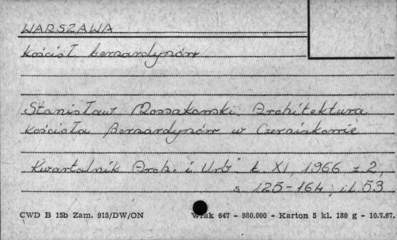 WARSZAWA
Kościół bernardynów
Stanisław Mossakowski, Architektura
kościoła Bernardynów w Czerniakowie
"Kwartalnik Arch. i Urb" t. XI, 1966 z 2,
s 125-164, il 53
CWD B 15b Zam. 915/DW/ON Włak 647 - 980.000 - Karton 5 kl. 180 g - 10.7.67.